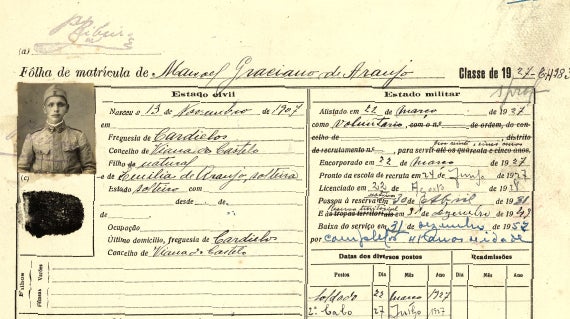 Ribeiro
(a)
Fôlha de matricula de Manoel Graciano de Araujo Classe de 1927
Estado civil
Nasceu a 13 de Novembro de 1907
em
Freguesia de Cardielos
Concelho de Viana do Castelo
Filho natural
de
e de Emilia de Araujo, solteira
(c)
Estado solteiro com
desde de de
Ocupação
Último domicílio, freguesia de Cardielos
Concelho de Viana do Castelo
Filhos
Fêmeas Varões
Estado militar
Alistado em 22 de março de 1927
como voluntário, com o n.º de ordem, do con-
celho de distrito
de recrutamento n.º para servir até aos quarenta e cinco anos.
Encorporado em 22 de março de 1927
Pronto da escola de recruta em 24 de Junho de 1927
Licenciado em 22 de Agosto de 1928
Passou à reserva em 30 de Abril de 1931
E às tropas territoriais em 31 de dezembro de 1947
Baixa do serviço em 31 de dezembro de 1952
por completar 45 anos de idade
Datas dos diversos postos
Readmissões
Postos Dia Mês Ano Dia Mês Ano
Soldado 22 março 1927
2.º Cabo 27 Junho 1927